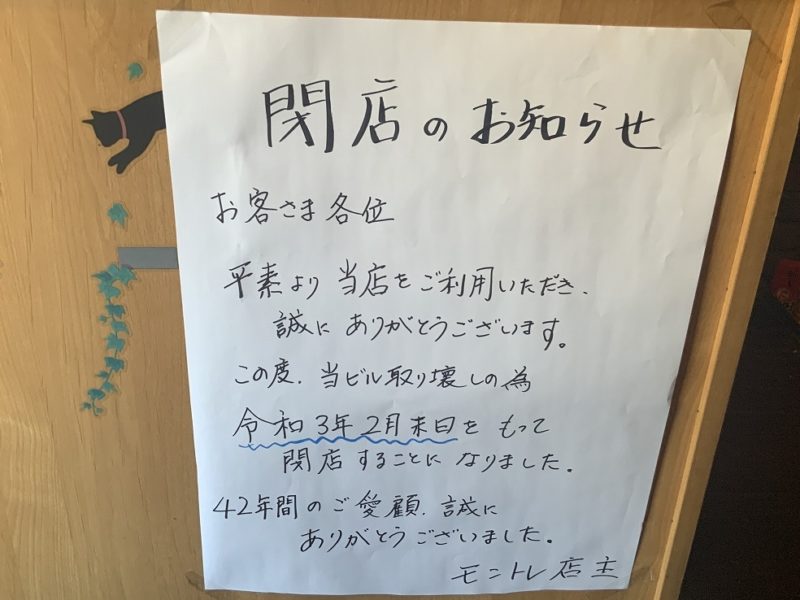 閉店のお知らせ
お客さま各位
平素より当店をご利用いただき、
誠にありがとうございます。
この度、当ビル取り壊しの為
令和3年2月末日をもって
閉店することになりました。
42年間のご愛顧、誠に
ありがとうございました。
モントレ店主